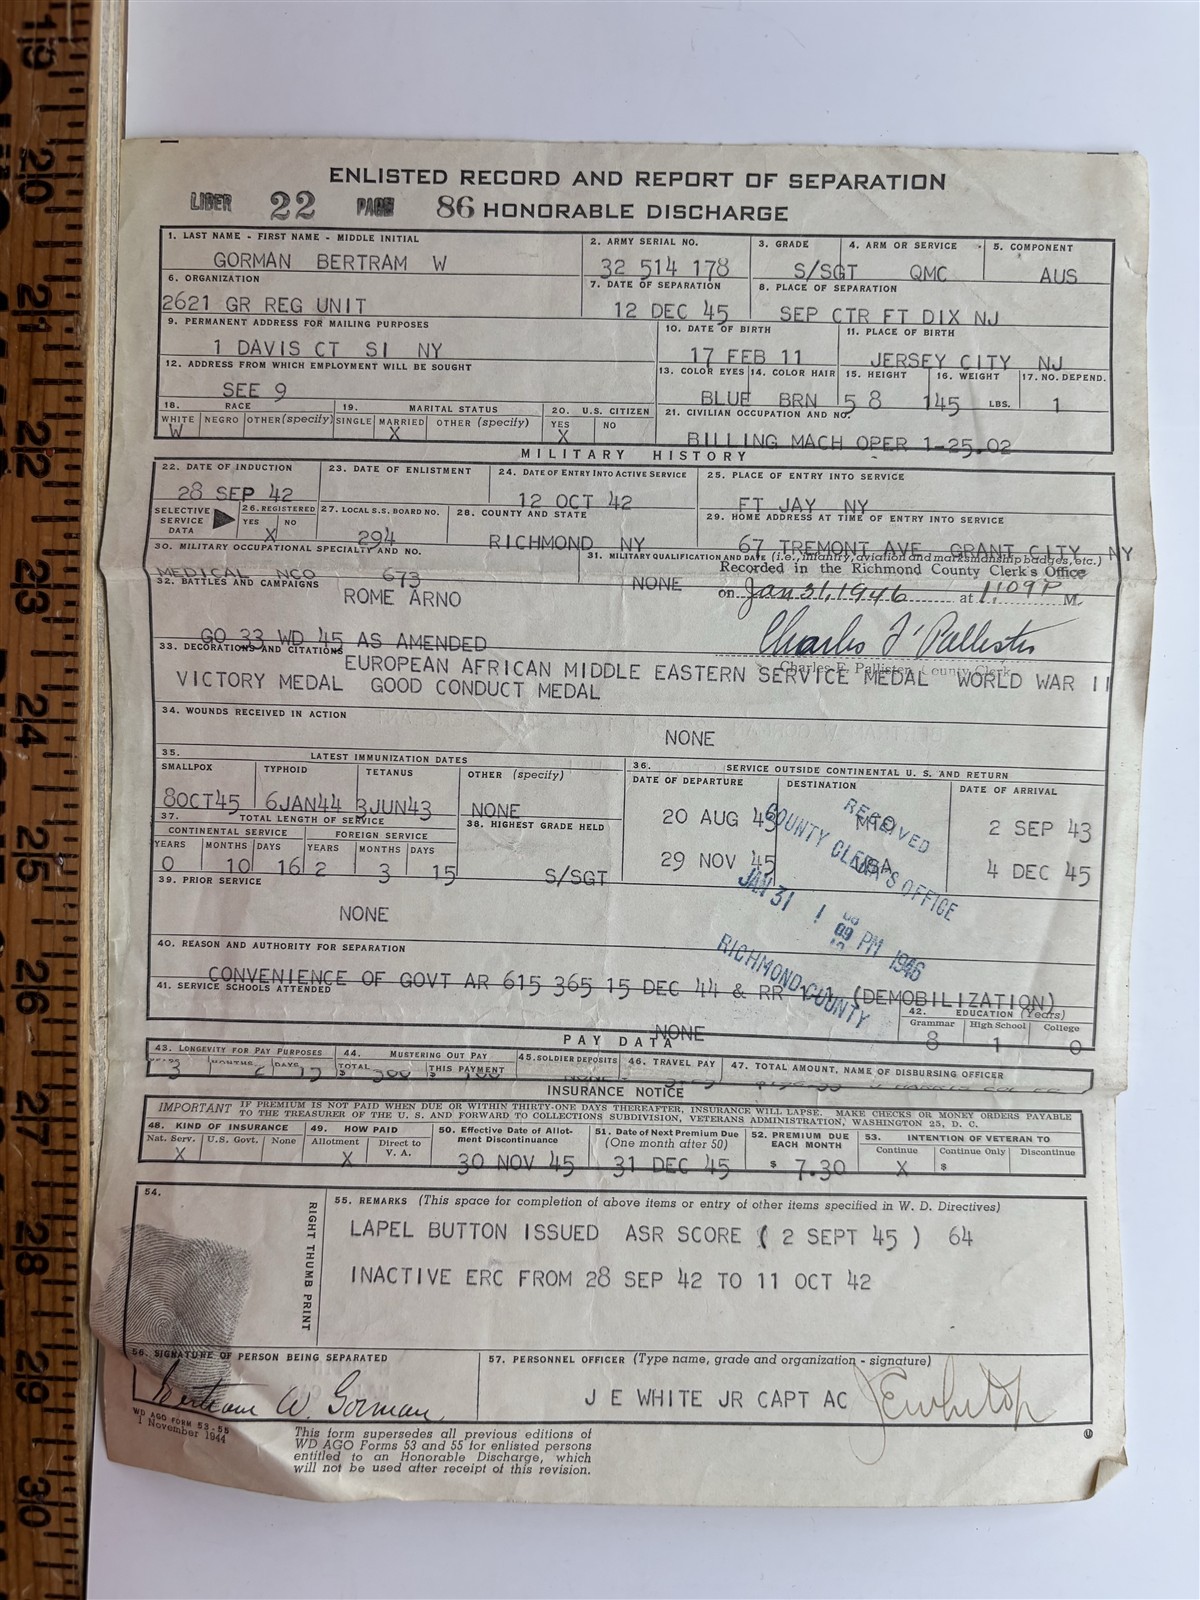 ENLISTED RECORD AND REPORT OF SEPARATION
LIBER 22 PAGE 86 HONORABLE DISCHARGE
1. LAST NAME - FIRST NAME - MIDDLE INITIAL 2. ARMY SERIAL NO. 3. GRADE 4. ARM OR SERVICE 5. COMPONENT
GORMAN BERTRAM W 32 514 178 S/SGT QMC AUS
6. ORGANIZATION 7. DATE OF SEPARATION 8. PLACE OF SEPARATION
2621 GR REG UNIT 12 DEC 45 SEP CTR FT DIX NJ
9. PERMANENT ADDRESS FOR MAILING PURPOSES 10. DATE OF BIRTH 11. PLACE OF BIRTH
1 DAVIS CT SI NY 17 FEB 11 JERSEY CITY NJ
12. ADDRESS FROM WHICH EMPLOYMENT WILL BE SOUGHT 13. COLOR EYES 14. COLOR HAIR 15. HEIGHT 16. WEIGHT 17. NO. DEPEND.
SEE 9 BLUE BRN 5 8 145 LBS. 1
18. RACE 19. MARITAL STATUS 20. U.S. CITIZEN 21. CIVILIAN OCCUPATION AND NO.
WHITE NEGRO OTHER (specify) SINGLE MARRIED OTHER (specify) YES NO
W X X BILLING MACH OPER 1-25.02
MILITARY HISTORY
22. DATE OF INDUCTION 23. DATE OF ENLISTMENT 24. DATE OF ENTRY INTO ACTIVE SERVICE 25. PLACE OF ENTRY INTO SERVICE
28 SEP 42 12 OCT 42 FT JAY NY
SELECTIVE SERVICE DATA 26. REGISTERED YES NO 27. LOCAL S.S. BOARD NO. 28. COUNTY AND STATE 29. HOME ADDRESS AT TIME OF ENTRY INTO SERVICE
X 294 RICHMOND NY 67 TREMONT AVE GRANT CITY NY
30. MILITARY OCCUPATIONAL SPECIALTY AND NO. 31. MILITARY QUALIFICATION AND DATE (i.e., infantry, aviation and marksmanship badges, etc.)
MEDICAL NCO 673 NONE Recorded in the Richmond County Clerk's Office
32. BATTLES AND CAMPAIGNS on Jan 31, 1946 at 1:09 P M.
ROME ARNO
GO 33 WD 45 AS AMENDED Charles F Pallister
33. DECORATIONS AND CITATIONS Charles F. Pallister, County Clerk
EUROPEAN AFRICAN MIDDLE EASTERN SERVICE MEDAL WORLD WAR II
VICTORY MEDAL GOOD CONDUCT MEDAL
34. WOUNDS RECEIVED IN ACTION
NONE
35. LATEST IMMUNIZATION DATES 36. SERVICE OUTSIDE CONTINENTAL U. S. AND RETURN
SMALLPOX TYPHOID TETANUS OTHER (specify) DATE OF DEPARTURE DESTINATION DATE OF ARRIVAL
8OCT45 6JAN44 3JUN43 NONE 20 AUG 43 MTO 2 SEP 43
37. TOTAL LENGTH OF SERVICE 38. HIGHEST GRADE HELD
CONTINENTAL SERVICE FOREIGN SERVICE
YEARS MONTHS DAYS YEARS MONTHS DAYS
0 10 16 2 3 15 S/SGT 29 NOV 45 USA 4 DEC 45
RECEIVED
COUNTY CLERK'S OFFICE
JAN 31 1 09 PM 1946
RICHMOND COUNTY
39. PRIOR SERVICE
NONE
40. REASON AND AUTHORITY FOR SEPARATION
CONVENIENCE OF GOVT AR 615 365 15 DEC 44 & RR 1-1 (DEMOBILIZATION)
41. SERVICE SCHOOLS ATTENDED 42. EDUCATION (Years)
Grammar High School College
NONE 8 1 0
PAY DATA
43. LONGEVITY FOR PAY PURPOSES 44. MUSTERING OUT PAY 45. SOLDIER DEPOSITS 46. TRAVEL PAY 47. TOTAL AMOUNT, NAME OF DISBURSING OFFICER
YEARS MONTHS DAYS TOTAL THIS PAYMENT
3 2 $ 300 $ 100
INSURANCE NOTICE
IMPORTANT IF PREMIUM IS NOT PAID WHEN DUE OR WITHIN THIRTY-ONE DAYS THEREAFTER, INSURANCE WILL LAPSE. MAKE CHECKS OR MONEY ORDERS PAYABLE
TO THE TREASURER OF THE U. S. AND FORWARD TO COLLECTIONS SUBDIVISION, VETERANS ADMINISTRATION, WASHINGTON 25, D. C.
48. KIND OF INSURANCE 49. HOW PAID 50. Effective Date of Allotment Discontinuance 51. Date of Next Premium Due (One month after 50) 52. PREMIUM DUE EACH MONTH 53. INTENTION OF VETERAN TO
Nat. Serv. U.S. Govt. None Allotment Direct to V. A. Continue Continue Only Discontinue
X X 30 NOV 45 31 DEC 45 $ 7.30 X $
54. RIGHT THUMB PRINT
55. REMARKS (This space for completion of above items or entry of other items specified in W. D. Directives)
LAPEL BUTTON ISSUED ASR SCORE ( 2 SEPT 45 ) 64
INACTIVE ERC FROM 28 SEP 42 TO 11 OCT 42
56. SIGNATURE OF PERSON BEING SEPARATED 57. PERSONNEL OFFICER (Type name, grade and organization - signature)
Bertram W. Gorman J E WHITE JR CAPT AC JEWhite Jr
WD AGO FORM 53-55
1 November 1944
This form supersedes all previous editions of
WD AGO Forms 53 and 55 for enlisted persons
entitled to an Honorable Discharge, which
will not be used after receipt of this revision.
19
20
21
22
23
24
25
26
27
28
29
30